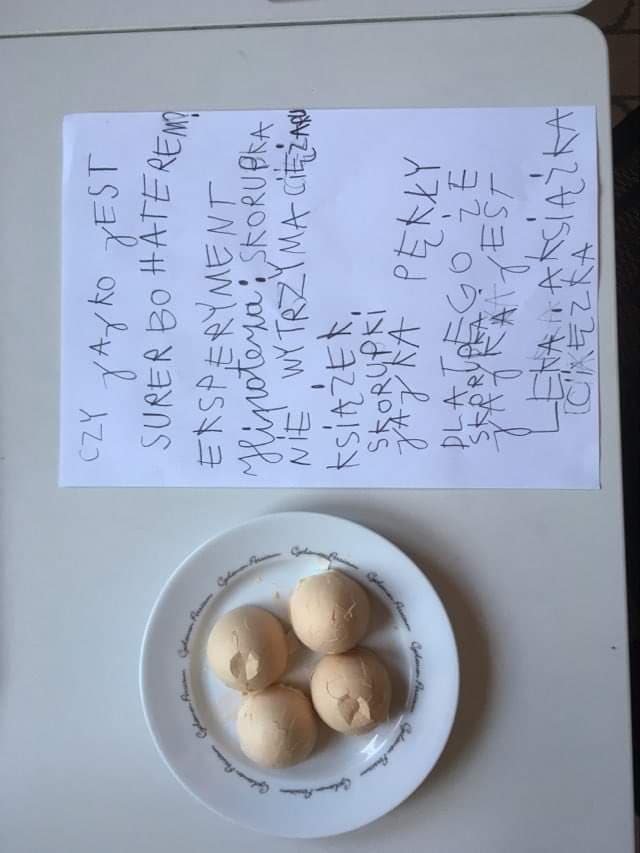 CZY JAJKO JEST
SUPER BOHATEREM?
EKSPERYMENT
Hipoteza: SKORUPKA
NIE WYTRZYMA CIĘŻARU
KSIĄŻEK!
SKORUPKI
JAJKA PĘKŁY
DLATEGO ŻE
JEST
LEKKA A KSIĄŻKA
CIĘŻKA